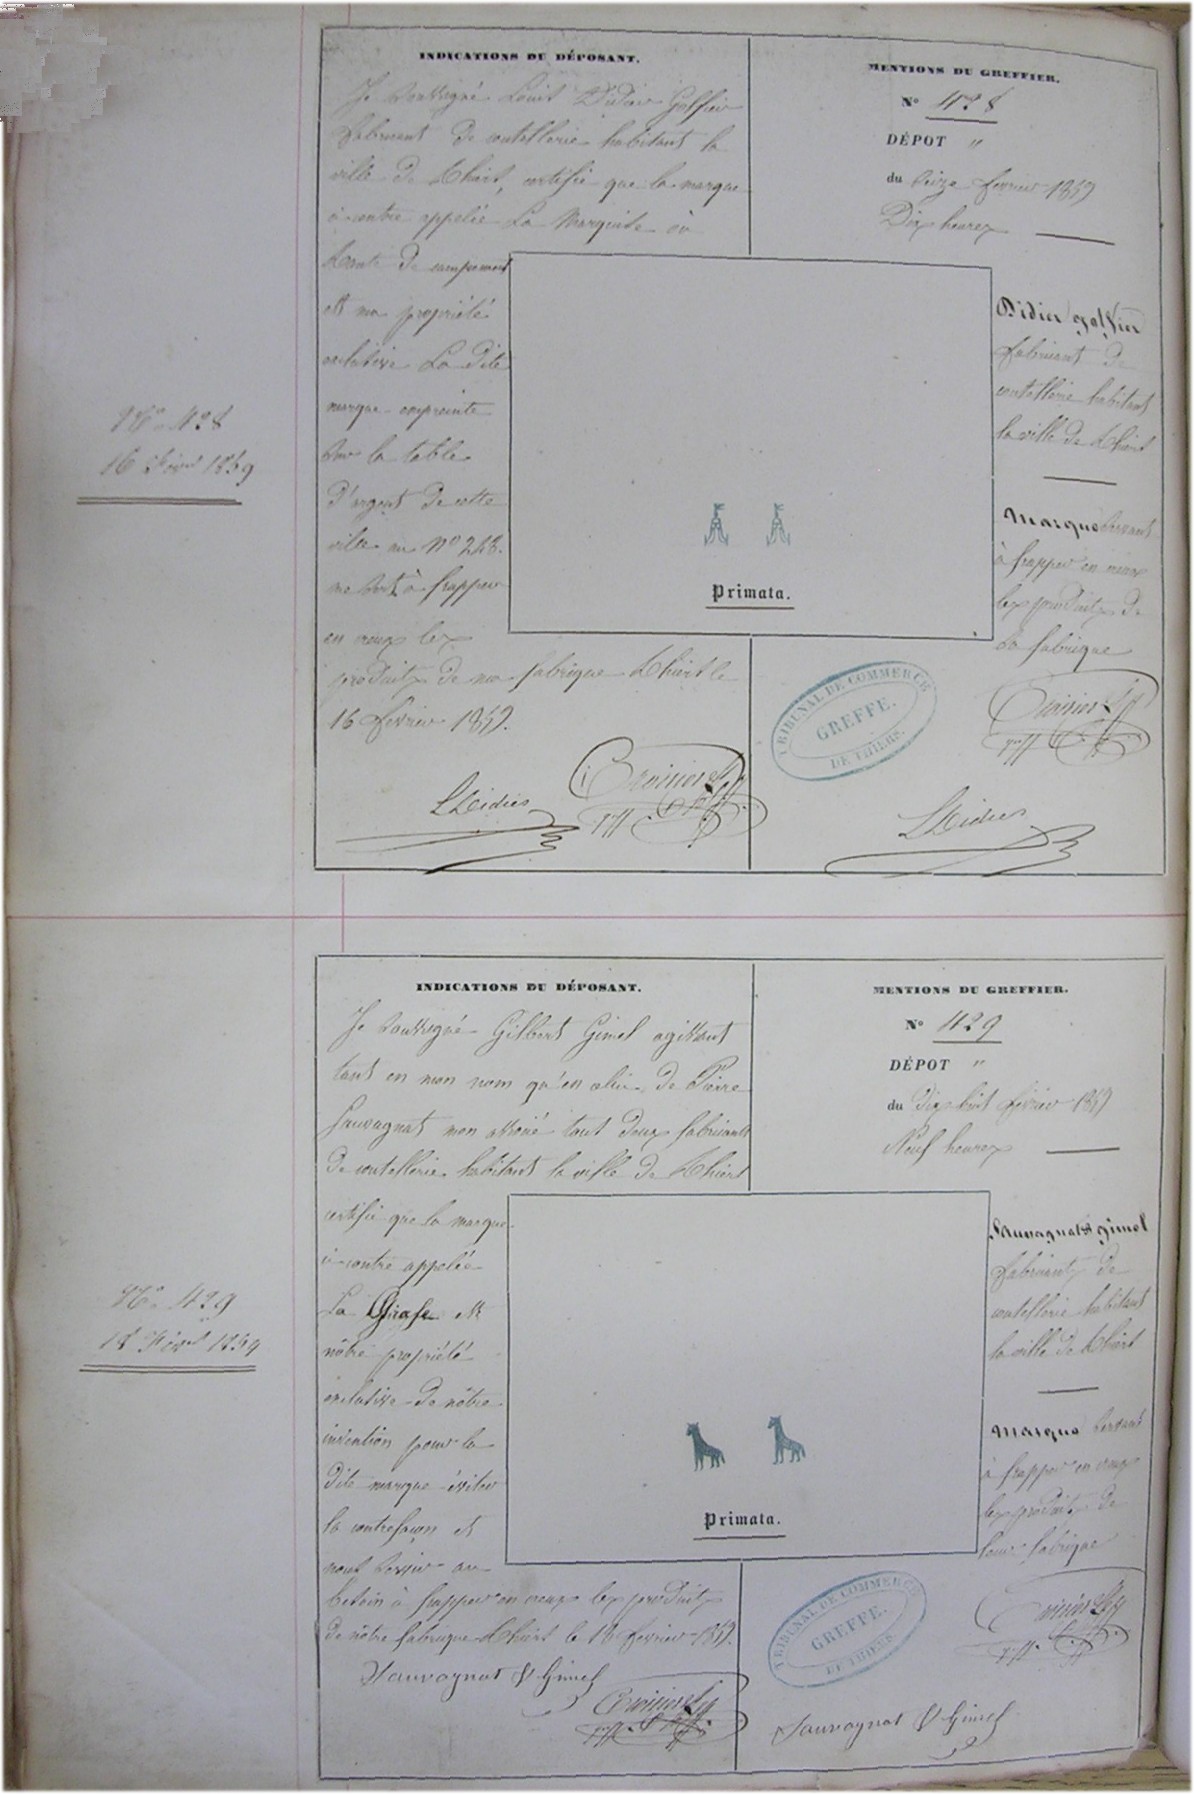 INDICATIONS DU DÉPOSANT.
Je soussigné Louis Didier Golfier
fabricant de coutellerie habitant la
ville de Thiers, certifie que la marque
ci-contre appelée La Marquise ou
tente de campement
est ma propriété
exclusive La dite
marque empreinte
sur la table
d'argent de cette
ville au No 248.
me sert à frapper
en creux les
produits de ma fabrique Thiers le
16 février 1859.
LDidier
Croisier
MENTIONS DU GREFFIER.
N° 428
DÉPOT "
du Seize février 1859
Dix heures
Didier golfier
fabricant de
coutellerie habitant
la ville de Thiers
Marque servant
à frapper en creux
les produits de
sa fabrique
Primata.
TRIBUNAL DE COMMERCE
GREFFE.
DE THIERS.
Croisier
LDidier
No 428
16 Févr 1859
INDICATIONS DU DÉPOSANT.
Je soussigné Gilbert Gimel agissant
tant en mon nom qu'en celui de Pierre
Sauvagnat mon associé tout deux fabricants
de coutellerie habitant la ville de Thiers
certifie que la marque
ci-contre appelée
La Girafe est
nôtre propriété
exclusive de nôtre
invention pour la
dite marque éviter
la contrefaçon et
nous servir au
besoin à frapper en creux les produits
de nôtre fabrique Thiers le 18 février 1859.
Sauvagnat & Gimel
Croisier
MENTIONS DU GREFFIER.
N° 429
DÉPOT "
du Dix huit février 1859
Neuf heures
Sauvagnat & gimel
fabricants de
coutellerie habitant
la ville de Thiers
Marque servant
à frapper en creux
les produits de
leur fabrique
Primata.
TRIBUNAL DE COMMERCE
GREFFE.
DE THIERS.
Croisier
Sauvagnat & Gimel
No 429
18 Févr 1859